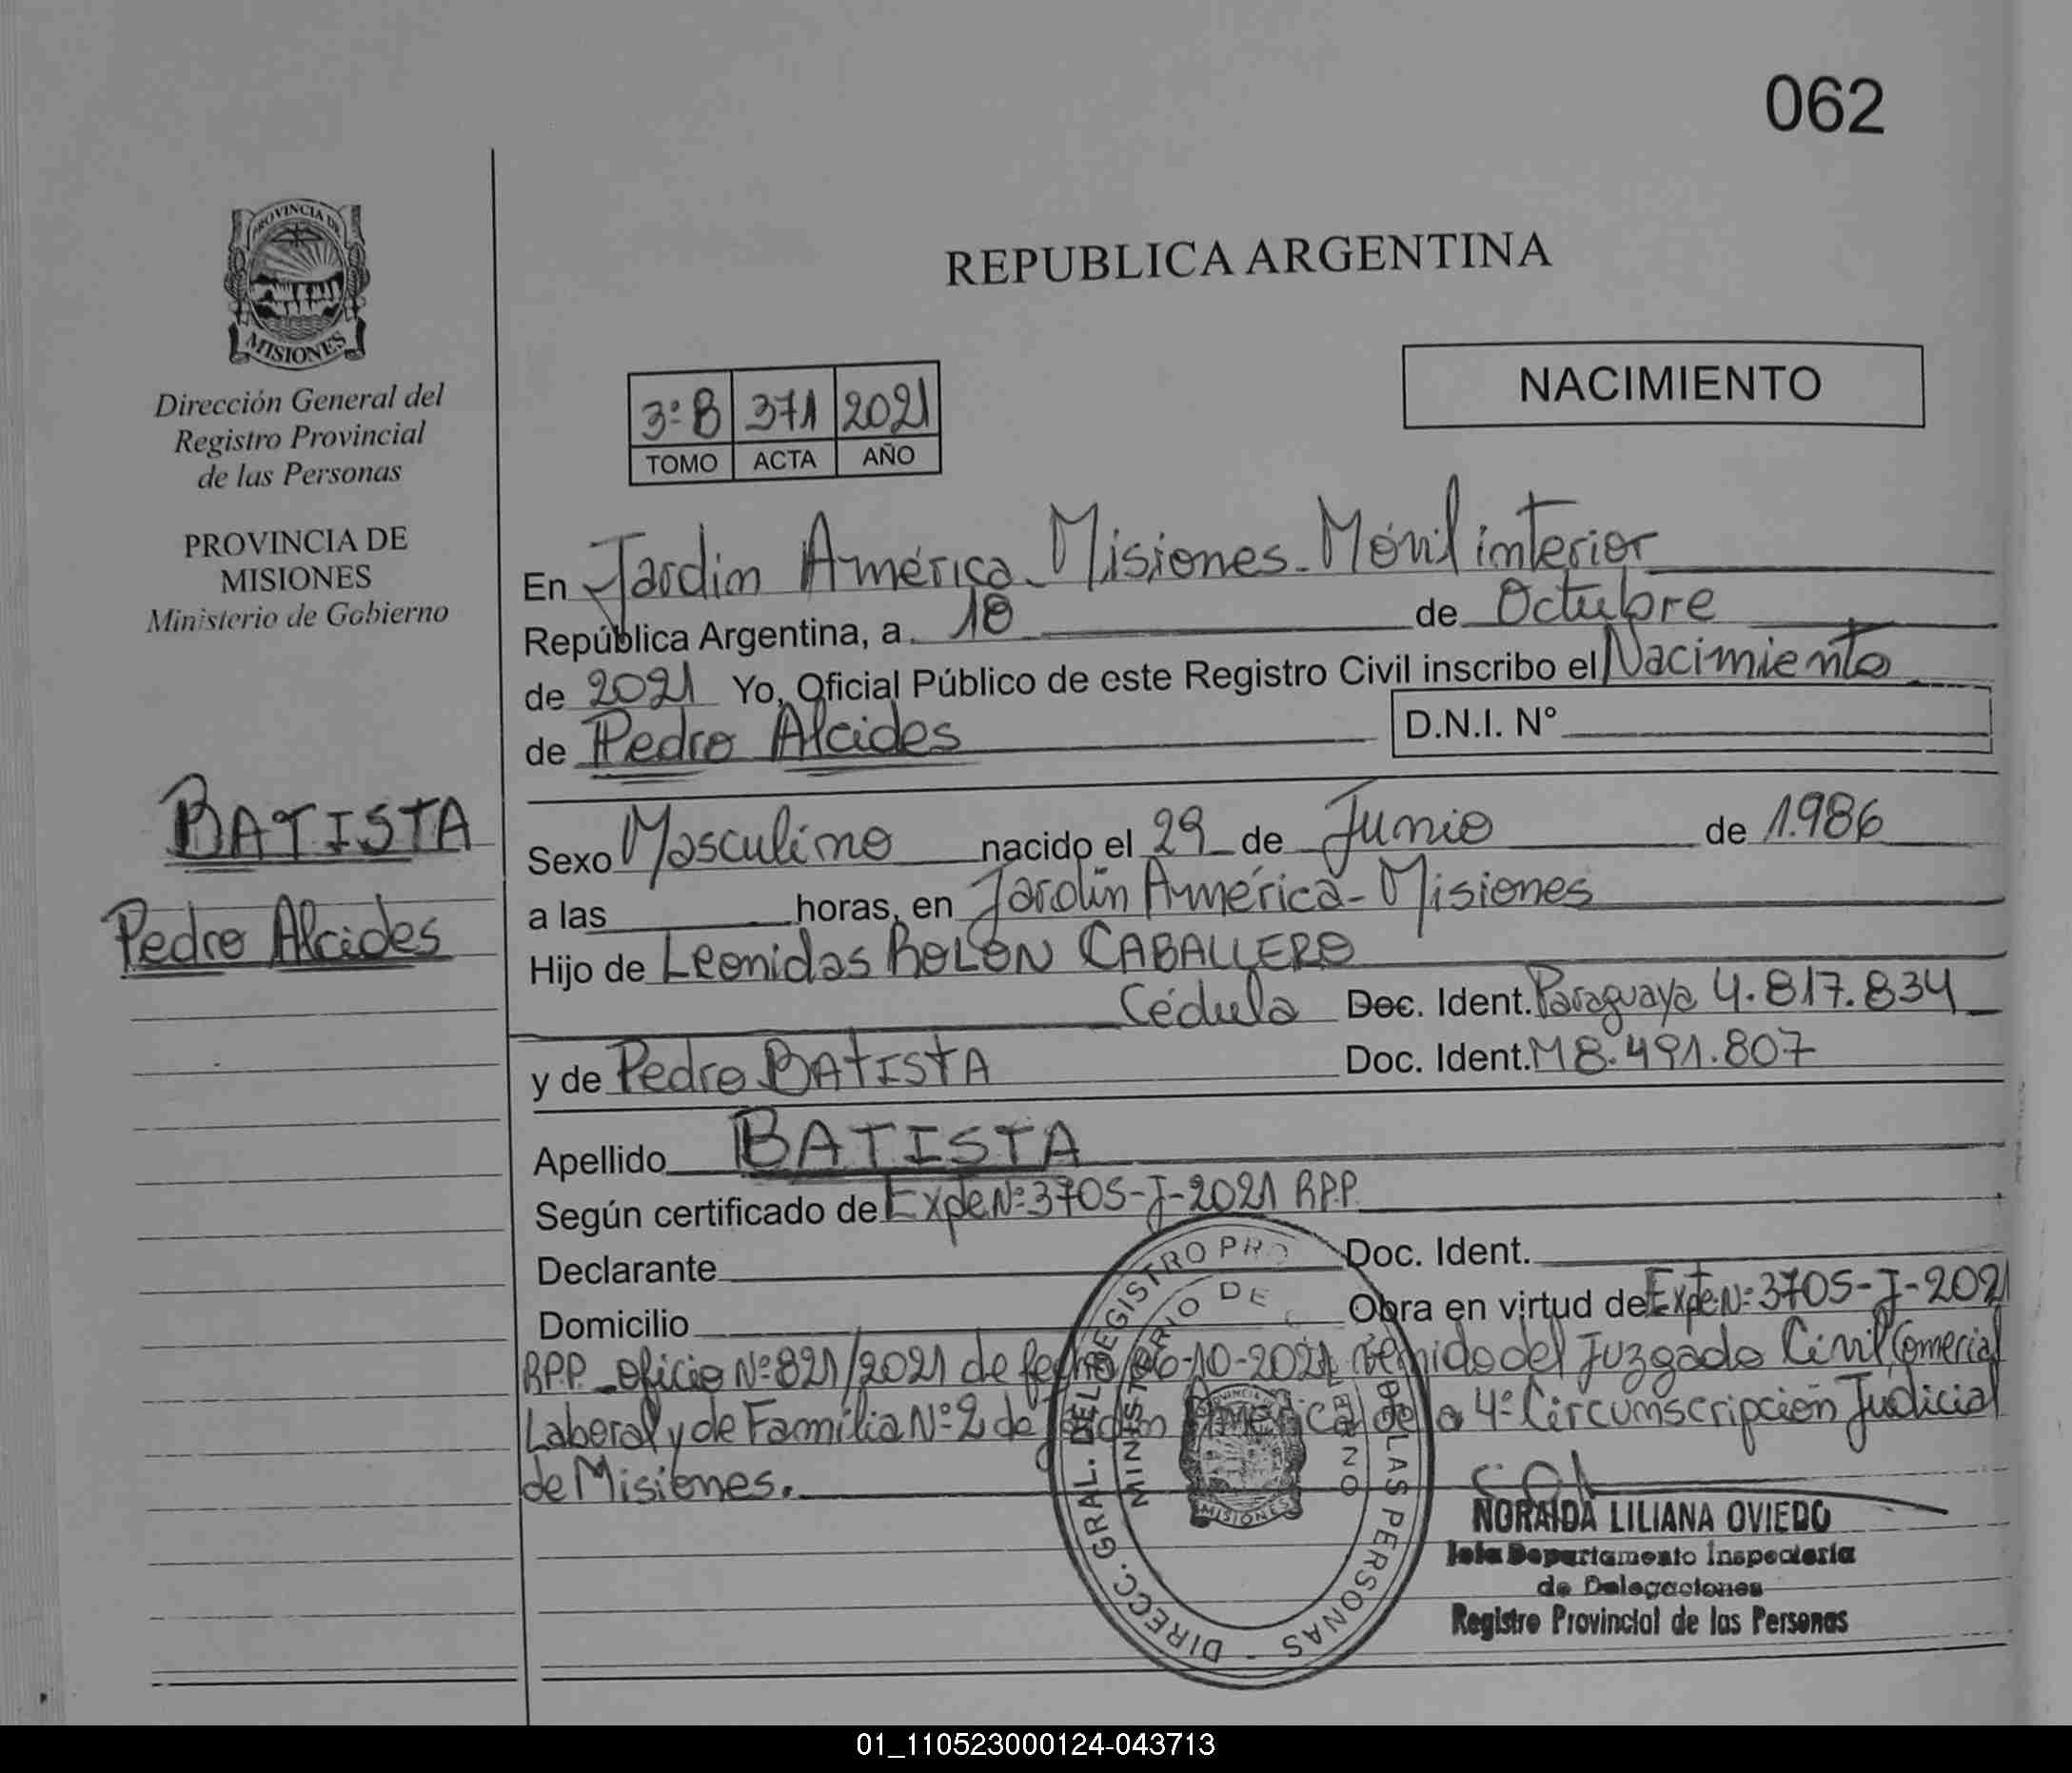 062
PROVINCIA DE
MISIONES
Dirección General del
Registro Provincial
de las Personas
PROVINCIA DE
MISIONES
Ministerio de Gobierno
BATISTA
Pedro Alcides
REPUBLICA ARGENTINA
NACIMIENTO
3º B 371 2021
TOMO ACTA AÑO
En Jardin América - Misiones - Móvil interior
República Argentina, a 18 de Octubre
de 2021 Yo, Oficial Público de este Registro Civil inscribo el Nacimiento
de Pedro Alcides D.N.I. Nº
Sexo Masculino nacido el 29 de Junio de 1.986
a las horas, en Jardin América - Misiones
Hijo de Leonidas ROLON CABALLERO
Cédula Doc. Ident. Paraguaya 4.817.834
y de Pedro BATISTA Doc. Ident. M 8.491.807
Apellido BATISTA
Según certificado de Expte Nº 3705-J-2021 RPP.
Declarante Doc. Ident.
Domicilio Obra en virtud de Expte Nº 3705-J-2021
RPP - Oficio Nº 821/2021 de fecha 06-10-2021 remido del Juzgado Civil Comercial
Laboral y de Familia Nº 2 de Jardin América de la 4º Circumscripción Judicial
de Misiones.
DIRECC. GRAL. DEL REGISTRO PRO DE LAS PERSONAS -
MINISTERIO DE GOBIERNO
MISIONES
NORAIDA LILIANA OVIEDO
Jefa Departamento Inspectoría
de Delegaciones
Registro Provincial de las Personas
01_110523000124-043713